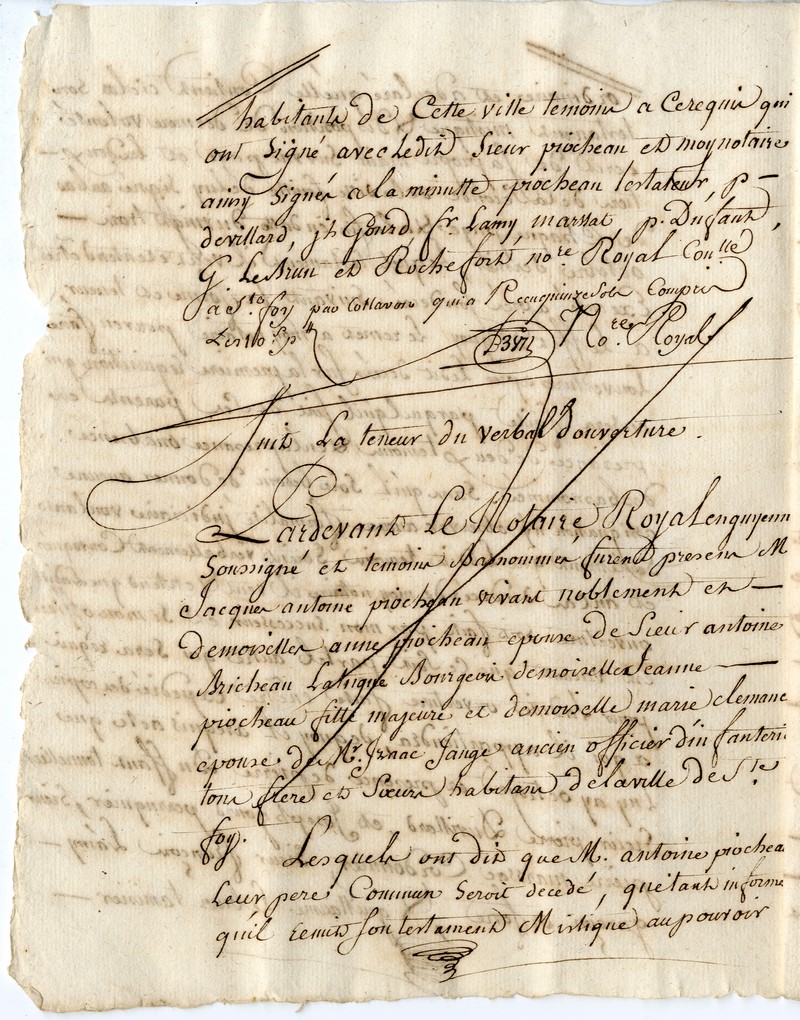 habitants de Cette ville temoins a Cerequis qui
ont Signé avec Ledit Sieur piocheau et moy notaire
ainsy Signés a la minutte piocheau testateur, p -
devillard, jh Gourd, fr. Lamy, marsat, p. Dufaut,
G. LeBrun et Rochefort, nore. Royal
a Ste. foy par Collation qui a Recu quinze Sols Compris
Les 10 s. pr
Nore. Royal
Suit La teneur du verbal d'ouverture.
Pardevant Le Notaire Royal en guyenn
Soussigné et temoins bas nommés furent presens M
Jacques antoine piocheau vivant noblement et —
demoiselles anne piocheau epouse de Sieur antoine
Bricheau Latuque Bourgeois demoiselles Jeanne —
piocheau fille majeure et demoiselle marie clemane
epouse de Mr. Izaac Jauge ancien officier d'infanteri
tous frere et Sœurs habitans de la ville de Ste.
foy.
Lesquels ont dit que M. antoine piochea
Leur pere Commun Seroit decedé, qu'etant informe
qu'il remit Son testament Mistique au pouvoir